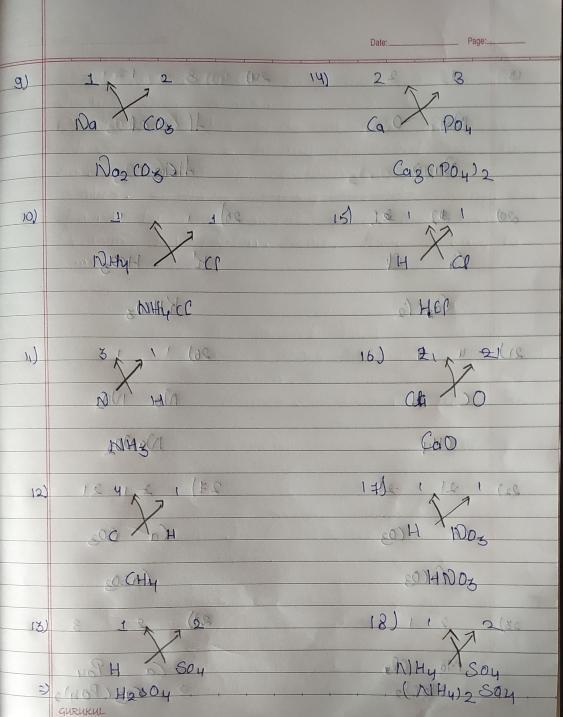 Date: Page:
9) 1 2
Na CO3
Na2CO3
10) 1 1
NH4 Cl
NH4Cl
11) 3 1
N H
NH3
12) 4 1
C H
CH4
13) 1 2
H SO4
=) H2SO4
14) 2 3
Ca PO4
Ca3(PO4)2
15) 1 1
H Cl
HCl
16) 1 1
Ca O
CaO
17) 1 1
H NO3
HNO3
18) 1 2
NH4 SO4
(NH4)2 SO4
GURUKUL